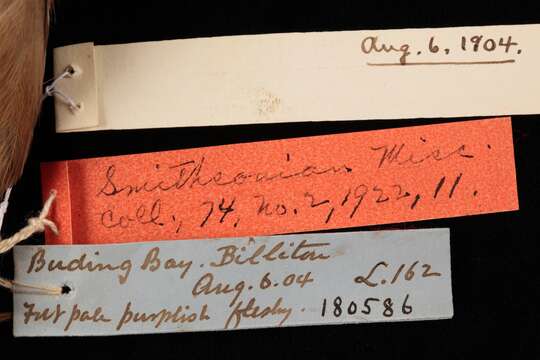 Aug. 6. 1904.
Smithsonian Misc.
Coll., 74, No. 2, 1922, 11.
Buding Bay. Billiton
Aug. 6. 04 L. 162
Feet pale purplish fleshy. 180586